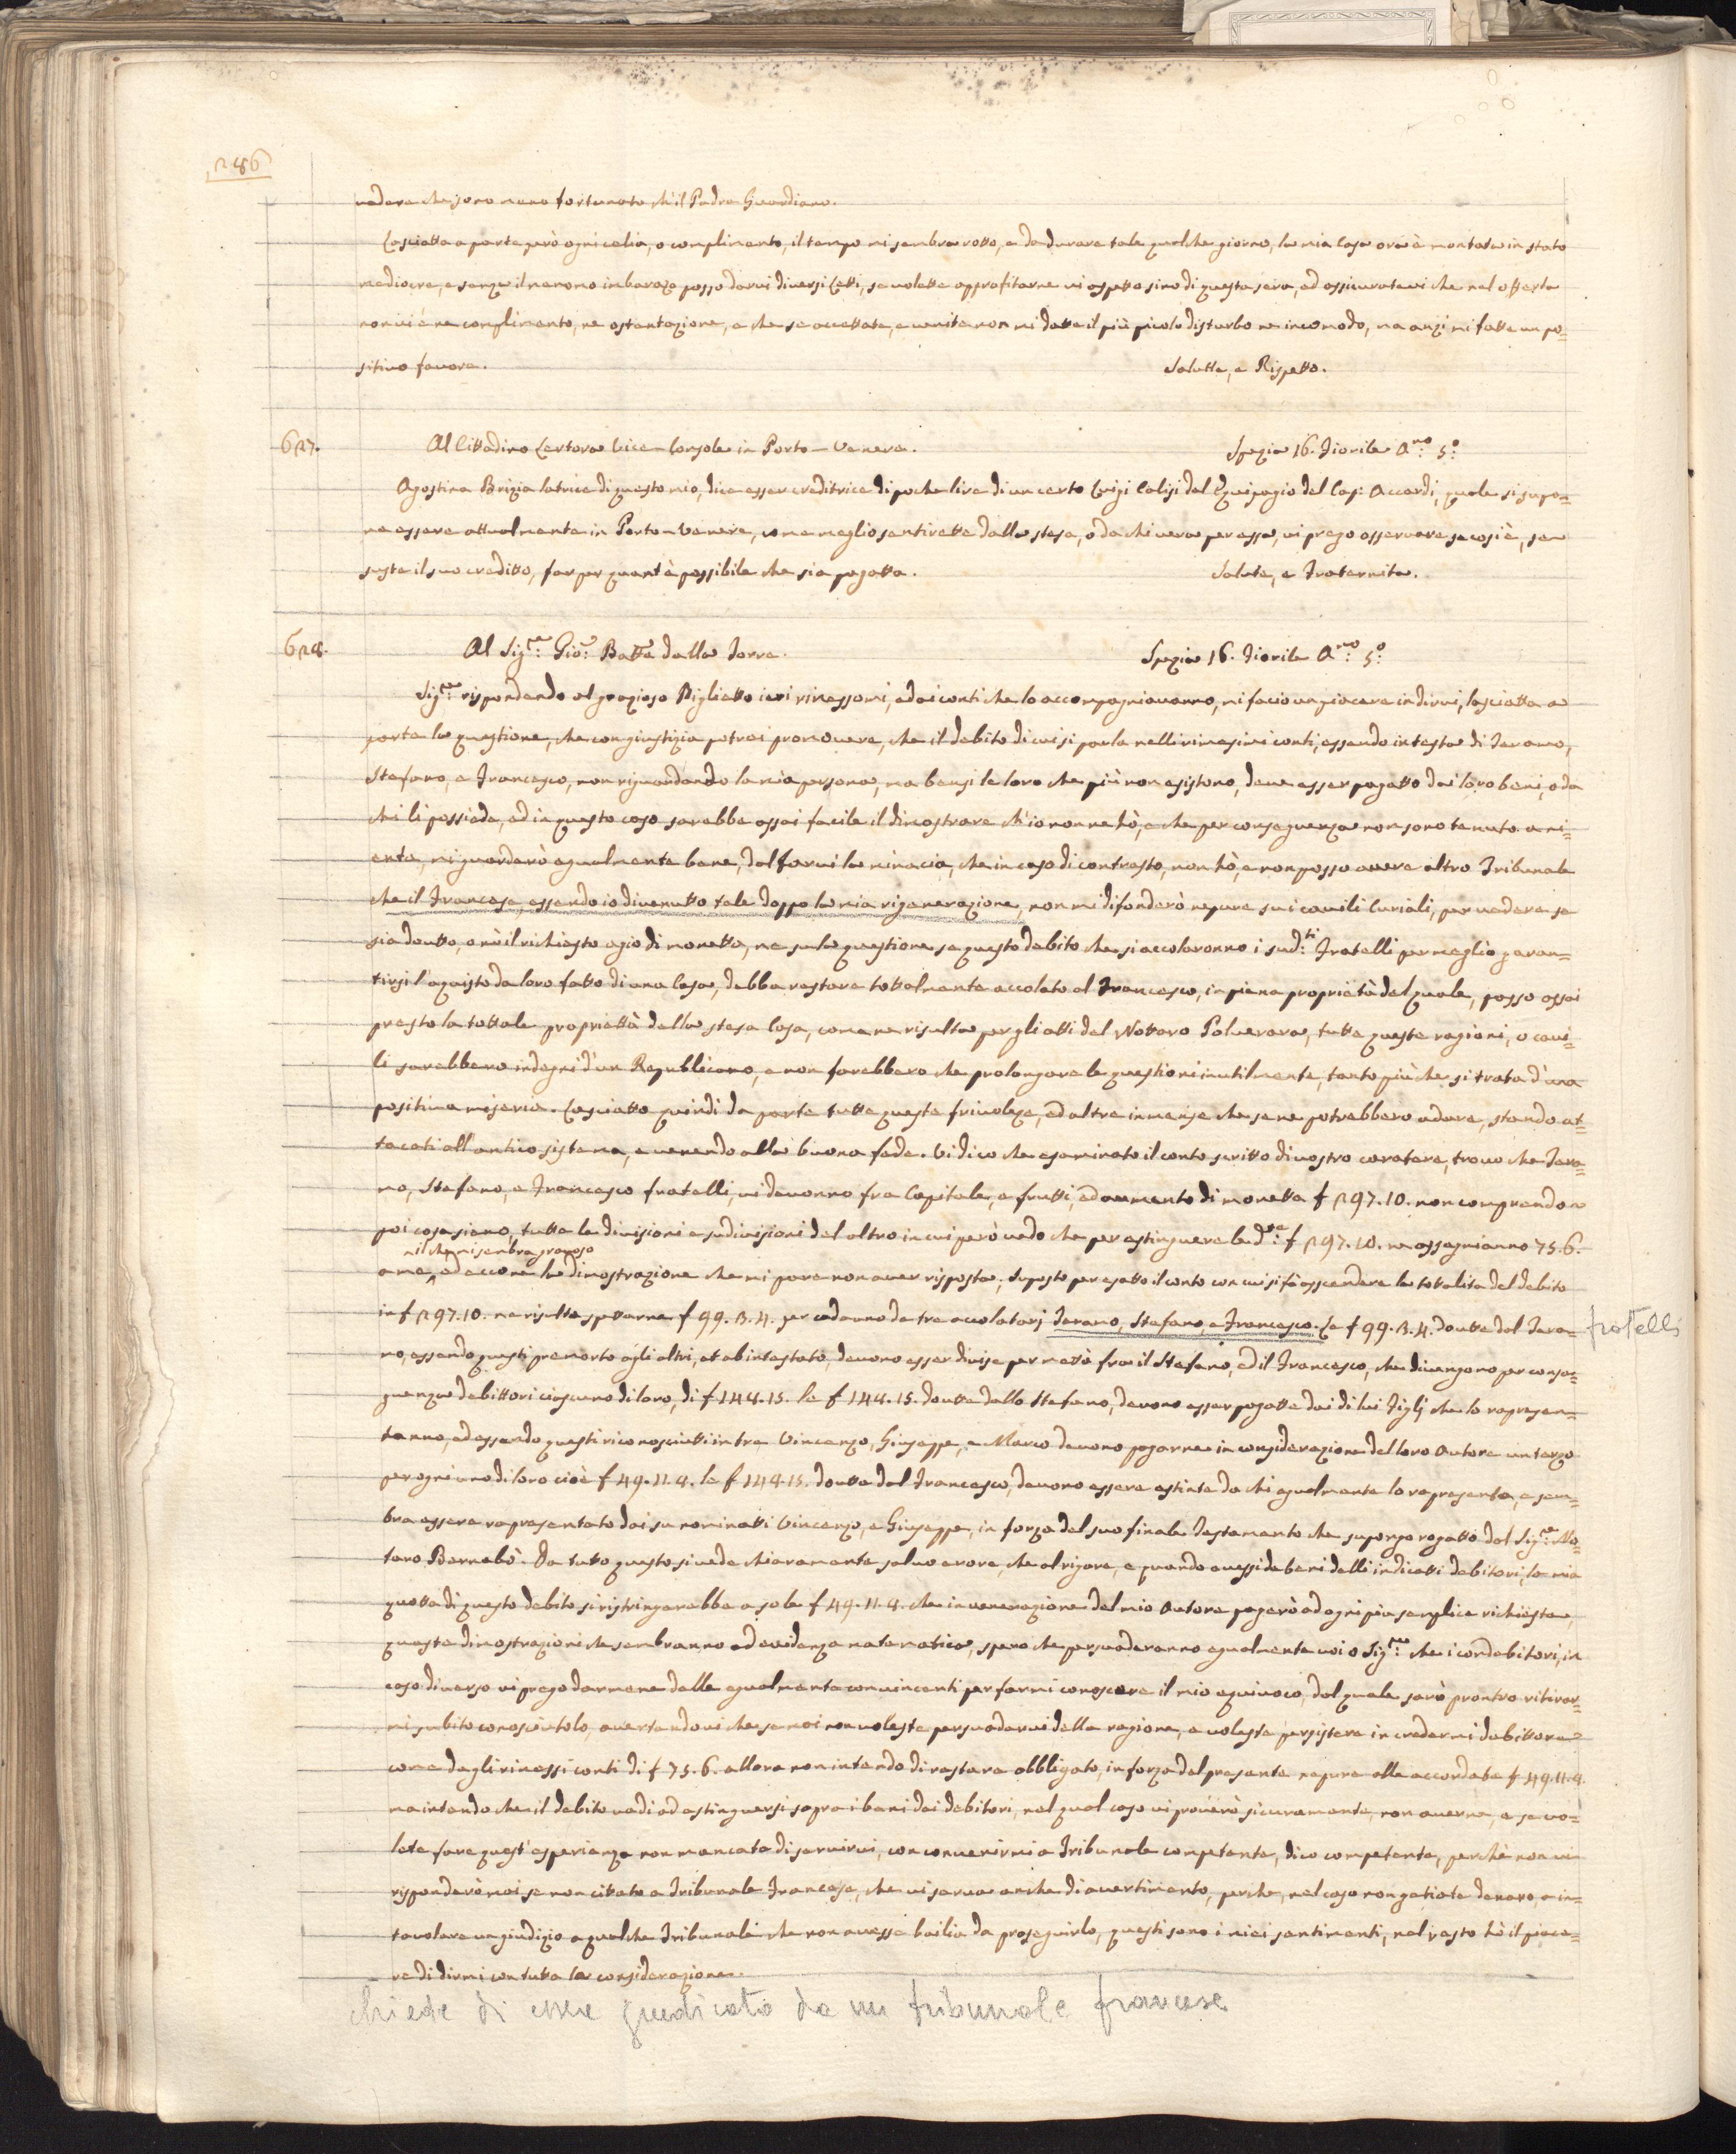 286
vedere che sono meno fortunato ch'il Padre Guardiano.
Lasciatta a parte però ogni celia, o complimento, il tempo mi sembra rotto, e da durare tale qualche giorno, la mia Casa ora è montata in stato
mediocre, e senza il menomo imbarazo posso darvi diversi Letti, se volette approfitarne vi aspetto sino di questa sera, ed assicuratevi che nel offerta
non vi è ne complimento, ne ostentazione, e che se accettate, e venite non mi datte il più picolo disturbo ne incomodo, ma anzi mi fatte un po=
sitivo favore. Salutte, e Rispetto.
627. Al Cittadino Lertora Vice-Console in Porto-Venere. Spezia 16. Fiorile A.no 5.o
Agostina Brizia latrice di questo mio, dice esser creditrice di poche lire di un certo Luigi Calisi del Equipagio del Cap: Accardi, quale si supo=
ne essere attualmente in Porto-Venere, come meglio sentirette dalla stesa, o da chi verra per essa, vi prego osservare se cosi è, se e
susiste il suo creditto, far per quant'è possibile che sia pagatta. Salute, e Fraternita.
628. Al Sig.re Gio: Batta dalla Torre. Spezia 16. Fiorile A.no 5.o
Sig.re rispondendo al grazioso Biglietto ieri rimessomi, ed ai conti che lo accompagniavanno, mi facio un piacere in dirvi, lasciatta a
parte la questione, che con giustizia potrei promovere, che il debito di cui si parla nelli rimesimi conti, essendo in testa di Jeramo,
Stefano, e Francesco, non riguardando la mia persona, ma bensi le loro che più non esistono, deve esser pagatto dai loro beni, o da
chi li possiede, ed in questo caso sarebbe assai facile il dimostrare ch'io non ne hò, e che per conseguenza non sono tenuto a ni=
ente, mi guarderò egualmente bene, dal farvi la minacia, che in caso di contrasto, non hò, e non posso avere altro Tribunale
che il Francese, essendo io divenutto tale doppo la mia rigenerazione, non mi difonderò nepure sui cavili Curiali, per vedere se
sia doutto, o nò il richiesto agio di monetta, ne su la questione se questo debito che si accolaronno i sud.ti Fratelli per meglio garan=
tirsi l'aquisto da loro fatto di una Casa, debba restare tottalmente accolato al Francesco, in piena proprietà del quale, passo assai
presto la tottale propriettà della stesa Casa, come ne risulta per gli atti del Nottaro Polverara, tutte queste ragioni, o cavi=
li sarebbero indegni d'un Republicano, e non farebbero che prolongare le questioni inutilmente, tanto più che si trata d'una
positiva miseria. Lasciatto quindi da parte tutte queste frivoleze, ed altre immense che se ne potrebbero adure, stando at=
tacati all'antico sistema, e venendo alla buona fede. Vi dico che esaminato il conto scritto di vostro caratere, trovo che Jera=
mo, Stefano, e Francesco fratelli, vi devonno fra Capitale, e frutti, ed aumento di monetta f 297.10. non comprendo
poi cosa siano, tutte le divisioni e sudivisioni del altro in cui però vedo che per estinguere le d.te f 297.10. ne assegnianno 75.6.
il che mi sembra gravoso
a me, ed eccone la dimostrazione che mi pare non aver risposta; suposto per esatto il conto con cui si fà asscendere la tottalita del debito
in f 297.10. ne risulta spettarne f 99.3.4. per cadauno de tre accolatarj Jeramo, Stefano, e Francesco. Le f 99.3.4. doutte dal Jera= fratelli
mo, essendo questi premorto agli altri, et ab intestato, devono esser divise per mettà fra il Stefano, ed il Francesco, che divengono per conse=
guenza debittori ciascuno di loro, di f 148.15. le f 148.15. doutte dallo Stefano, devono esser pagatte dai di lui Figlj che lo rapresen=
tanno, ed essendo questi riconosciutti in tre Vincenzo, Giuseppe, e Marco devono pagarne in considerazione del loro Autore un terzo
per ogni uno di loro cioè f 49.11.8. le f 148.15. doutte dal Francesco, devono essere estinte da chi egualmente lo rapresenta, e sem=
bra essere rapresentato dai su nominatti Vincenzo, e Giuseppe, in forza del suo finale testamento che supongo rogatto dal Sig.re No=
taro Bernabò. Da tutto questo si vede chiaramente salvo erore, che al rigore, e quando avessi de beni delli indicatti debitori, la mia
quotta di questo debito si ristringerebbe a sole f 49.11.8. che in venerazione del mio Autore pagerò ad ogni più semplice richiesta,
queste dimostrazioni che sembranno ad evidenza matematica, spero che persuaderanno egualmente voi o Sig.re che i condebitori, in
caso diverso vi prego darmene delle egualmente convincenti per farmi conoscere il mio equivoco, dal quale sarò pronto ritirar=
mi subito conosciutolo, avertendovi che se mai non voleste persuadervi della ragione, e voleste persistere in credermi debittore
come dagli rimessi conti di f 75.6. allora non intendo di restare obbligato, in forza del presente nepure alle accordate f 49.11.8.
ma intendo che il debito vadi ad estinguersi sopra i beni dei debitori, nel qual caso vi proverò sicuramente, non averne, e se vo=
lete fare quest'esperienza non mancate di servirvi, con convenirmi a Tribunale competente, dico competente, perchè non vi
risponderò mai se non citato a Tribunale Francese, che vi serva anche di avertimento, perche, nel caso non getiate denaro, o in=
tavolare un giudizio a qualche Tribunale che non avesse bailia da proseguirlo, questi sono i miei sentimenti, nel resto hò il piace=
re di dirmi con tutta la considerazione.
chiede di essere giudicato da un tribunale francese